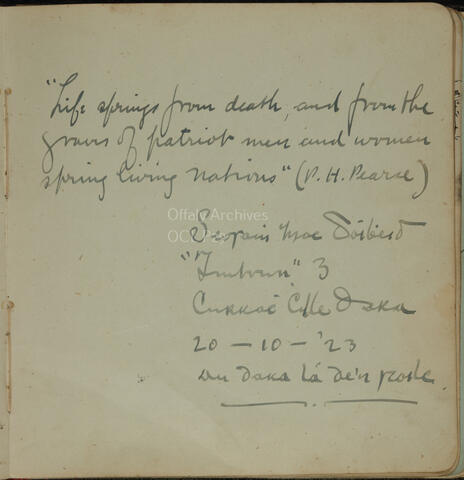 "Life springs from death, and from the
graves of patriot men and women
spring living Nations" (P. H. Pearse)
Offaly Archives
Mac
3
Cille Dara
20 - 10 - '23
An dara lá de'n